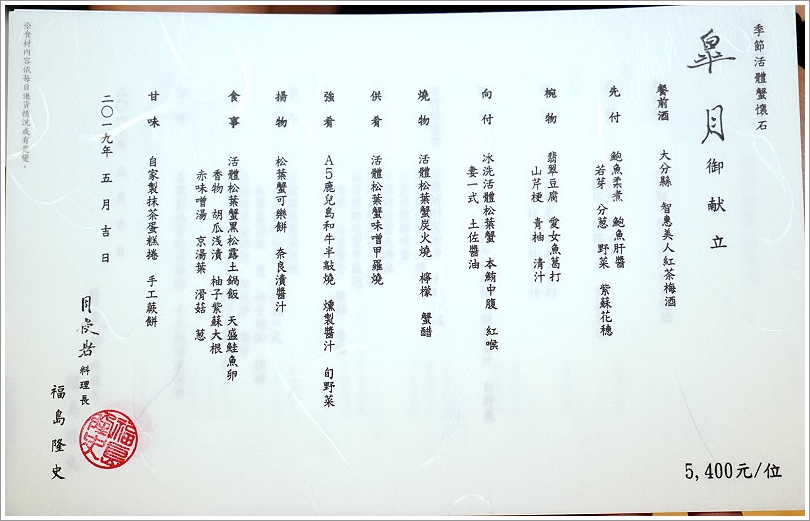 季節活體蟹懷石
皐月御献立
餐前酒 大分縣 智惠美人紅茶梅酒
先付 鮑魚柔煮 鮑魚肝醬
若芽 分葱 野菜 紫蘇花穗
椀物 翡翠豆腐 愛女魚葛打
山芹梗 青柚 清汁
向付 冰洗活體松葉蟹 本鮪中腹 紅喉
妻一式 土佐醬油
燒物 活體松葉蟹炭火燒 檸檬 蟹醋
供肴 活體松葉蟹味噌甲羅燒
強肴 A5鹿兒島和牛半敲燒 燻製醬汁 旬野菜
揚物 松葉蟹可樂餅 奈良漬醬汁
食事 活體松葉蟹黑松露土鍋飯 天盛鮭魚卵
香物 胡瓜浅漬 柚子紫蘇大根
赤味噌湯 京湯葉 滑菇 葱
甘味 自家製抹茶蛋糕捲 手工蕨餅
二〇一九年 五月吉日
料理長
福島隆史
福島隆史
※食材內容依每日進貨情況或有更變。
5,400元/位